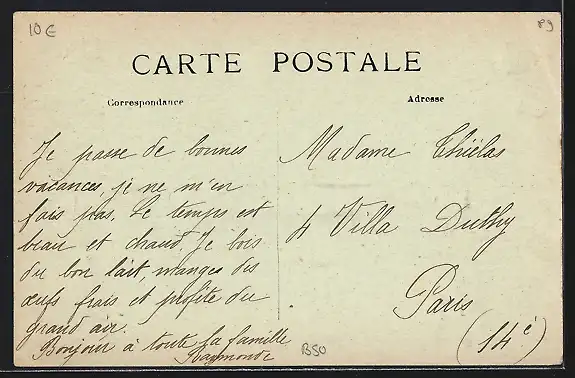 10€
89
CARTE POSTALE
Correspondance
Adresse
Je passe de bonnes
vacances, je ne m'en
fais pas. Le temps est
beau et chaud. Je bois
du bon lait, mange des
œufs frais et profite du
grand air.
Bonjour à toute la famille
Raymonde
Madame Thiélas
4 Villa Duthy
Paris
(14è)
B50